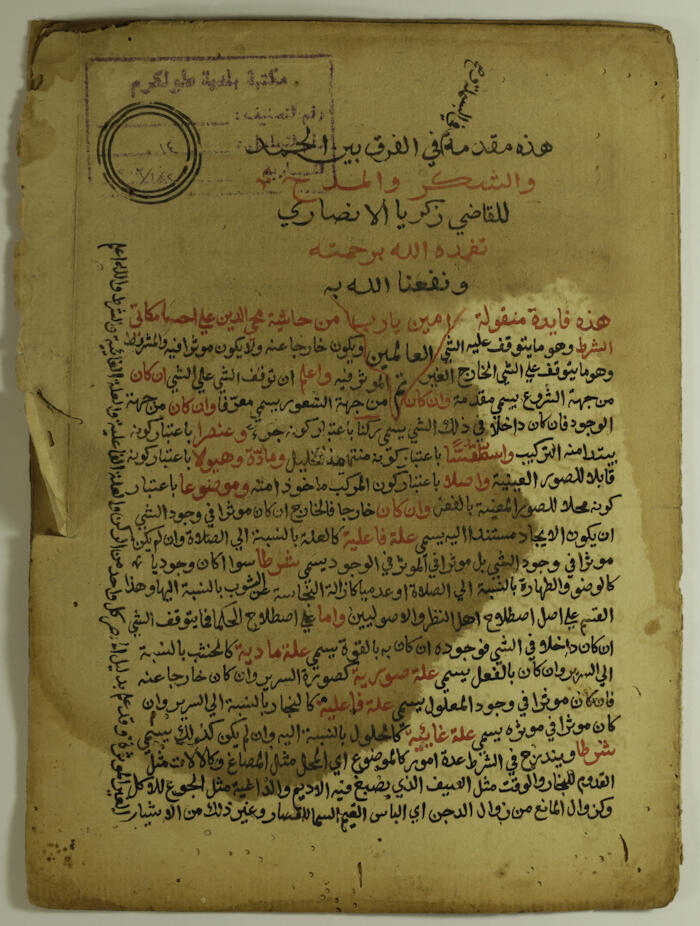 مكتبة بلدية طولكرم
رقم التصنيف :
١٤
هذه مقدمة في الفرق بين الحمد
والشكر والمدح
للقاضي زكريا الانصاري
تغمده الله برحمته
ونفعنا الله به
امين يارب
العالمين
تم
هذه فايدة منقولة من حاشية محي الدين علي احسامكاتى
الشرط وهو ما يتوقف عليه الشي ويكون خارجا عنه ولا يكون موثرا فيه والمشروط
وهو ما يتوقف على الشي الخارج الغير الموثر فيه واعلم ان توقف الشي على الشي ان كان
من جهة الشروع يسمي مقدمة وان كان من جهة الشعور يسمي معرفا وان كان من جهة
الوجود فان كان داخلا في ذلك الشي يسمي ركنا باعتبار كونه جزء وعنصرا باعتبار كونه
يبتدا منه التركيب واسطقسا باعتبار كونه منتها التحليل ومادة وهيولا باعتبار كونه
قابلا للصور العينية واصلا باعتبار كون المركب ماخوذ امنه وموضوعا باعتبار
كونه محلا للصور المعينة بالفعل وان كان خارجا فالخارج ان كان موثرا في وجود الشي
ان يكون الايجاد مستندا اليه يسمي علة فاعلية كالعلة بالنسبة الي الصلاة وان لم يكن
موثرا في وجود الشي بل موثرا في الموثر في الوجود يسمي شرطا سوا كان وجوديا
كالوضو والطهارة بالنسبة الي الصلاة او عدميا كازالة النجاسة عن الثوب بالنسبة اليها وهذا
القسم على اصل اصطلاح اهل النظر والاصوليين واما في اصطلاح الحكما فما يتوقف الشي
ان كان داخلا في الشي فوجوده ان كان به بالقوة يسمي علة مادية كالخشب بالنسبة
الي السرير وان كان بالفعل يسمي علة صورية كصورة السرير وان كان خارجا عنه
فان كان موثرا في وجود المعلول يسمي علة فاعلية كالنجار بالنسبة الي السرير وان
كان موثرا في موثره يسمي علة غائية كالجلول بالنسبة اليه وان لم يكن كذلك يسمي
شرطا ويندرج في الشرط عدة امور كالموضوع اي المحل مثل المصاغ وكالالات مثل
القدوم للنجار والوقت مثل الصيف الذي يصبغ فيه الاديم والداعية مثل الجوع للاكل
وكزوال المانع من زوال الدجن اي الباس الغيم السما للقصار وغير ذلك من الاشيا